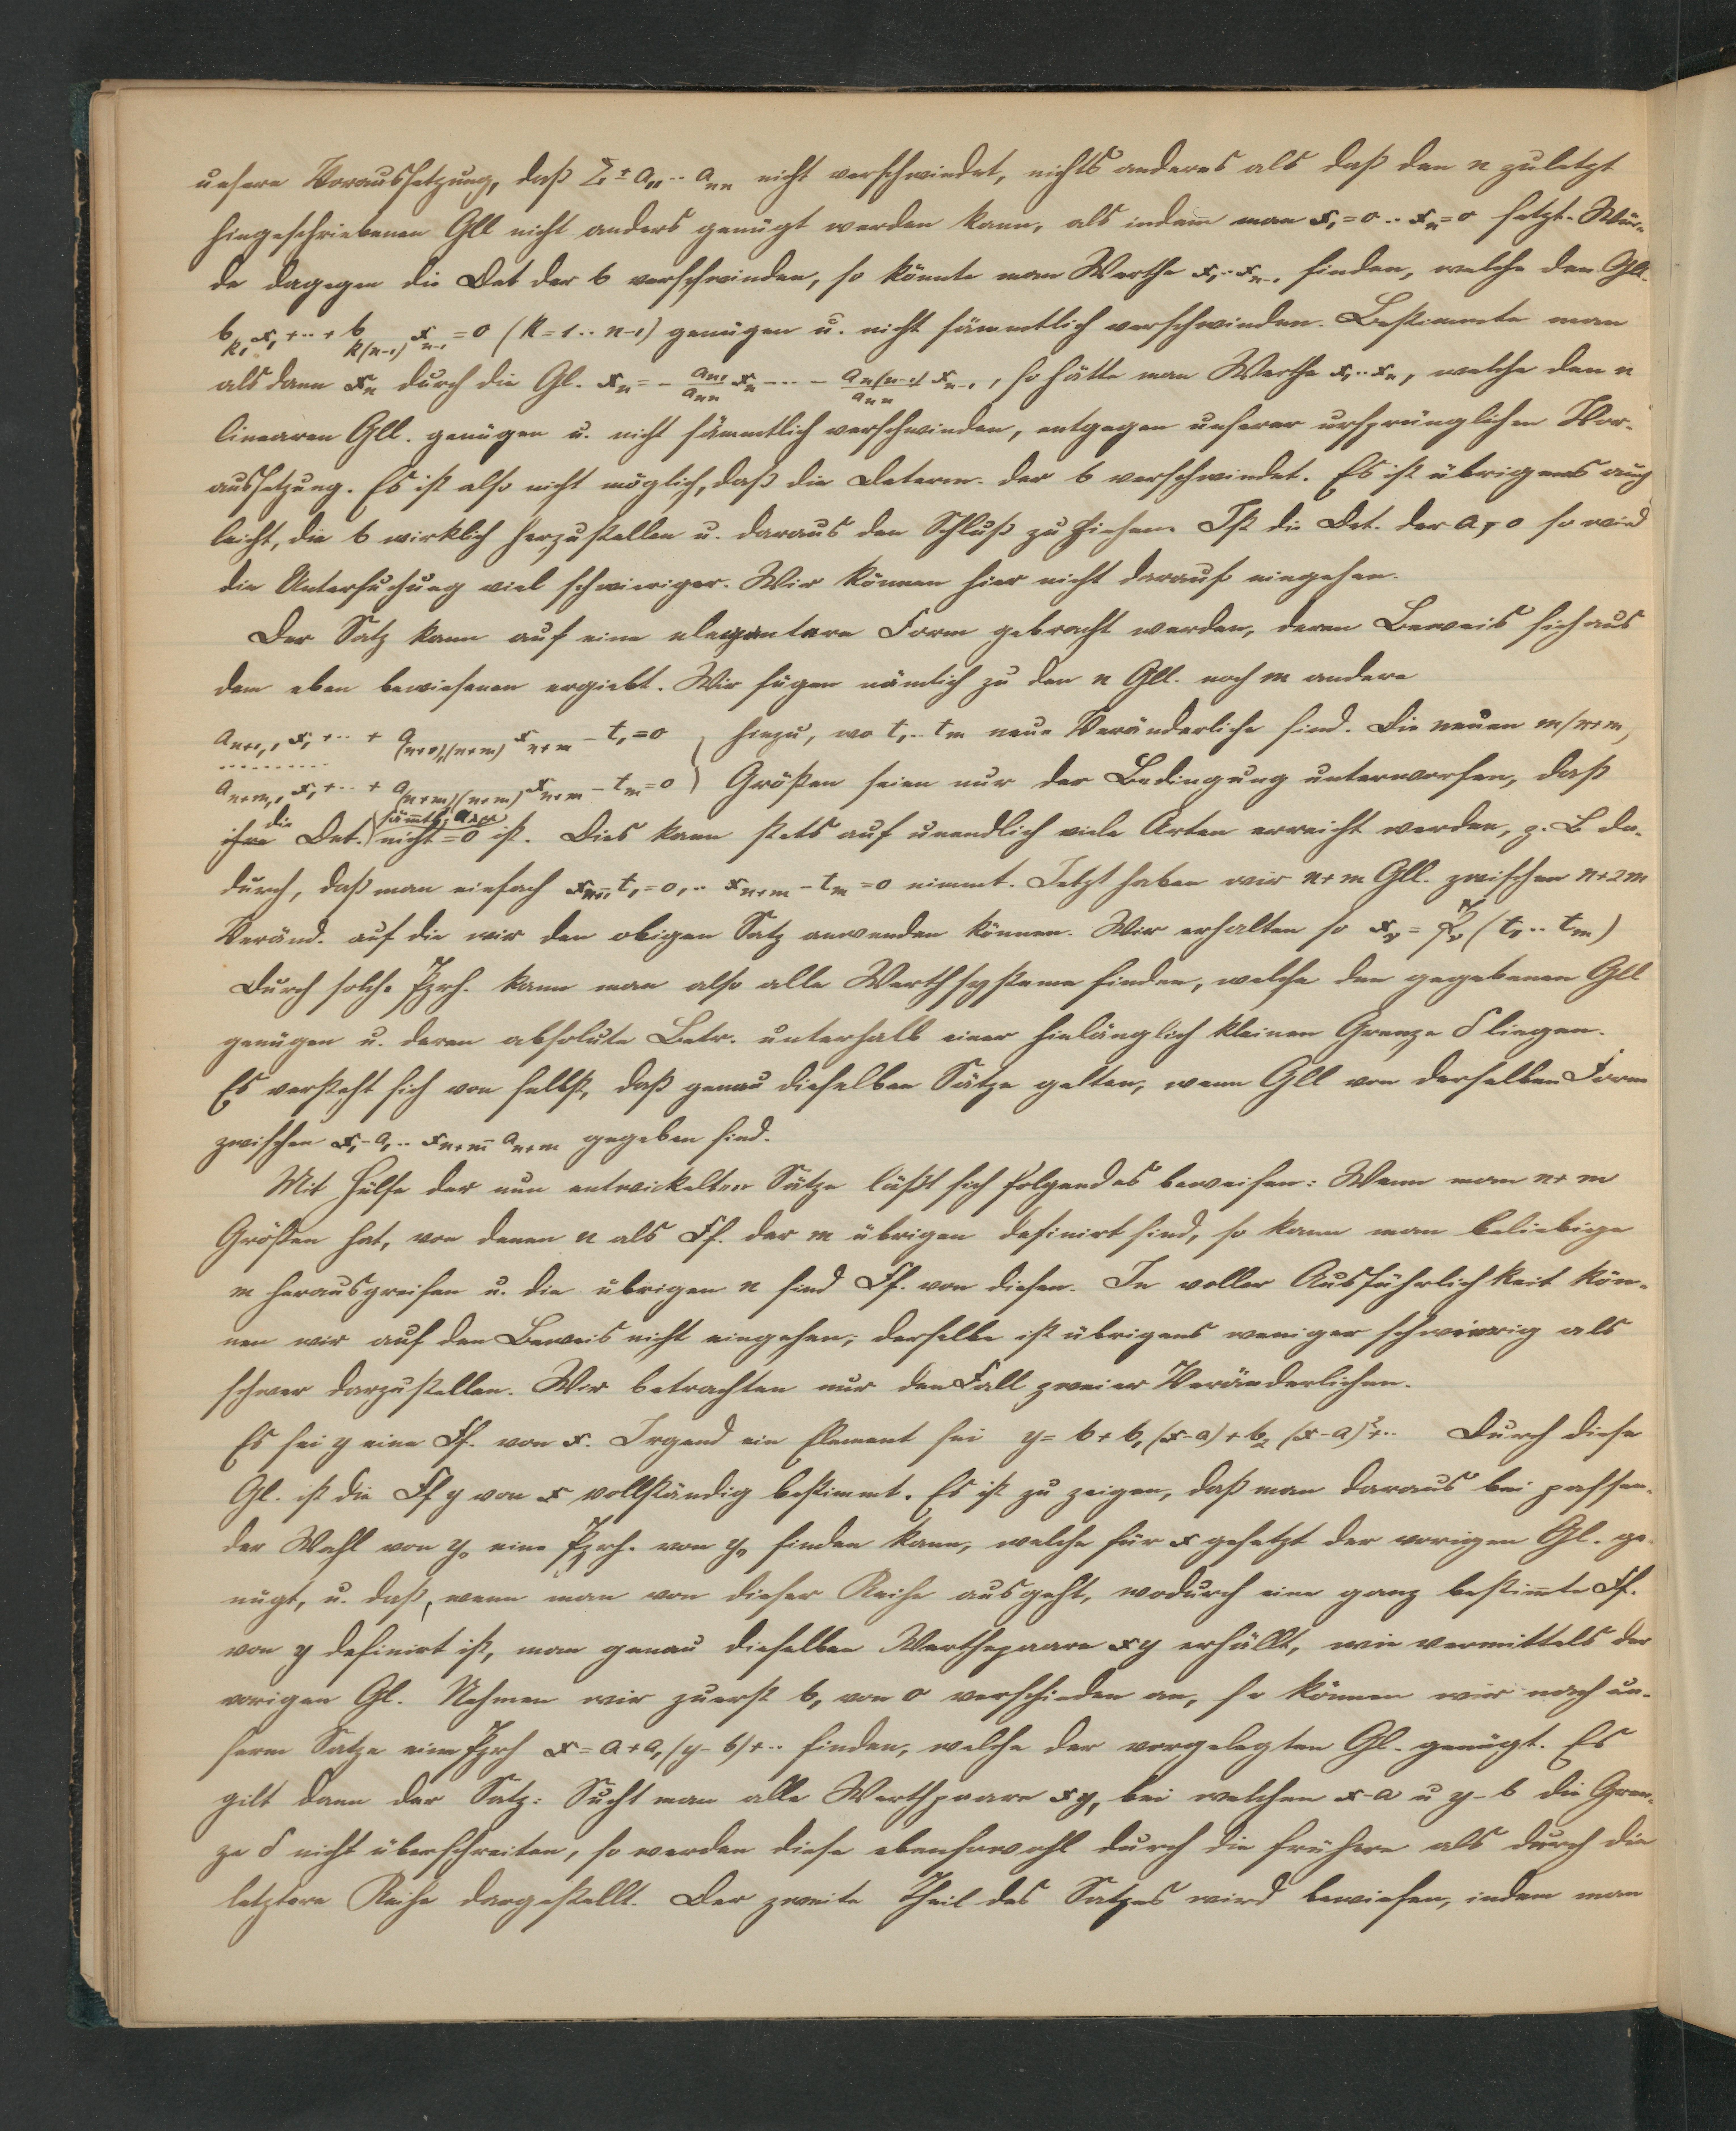 unsere Voraussetzung, daß Σ ± a₁₁·· aₙₙ nicht verschwindet, nichts anderes als daß den n zuletzt
hingeschriebenen Gll nicht anders genügt werden kann, als indem man x₁=0·· xₙ=0 setzt. Wür-
de dagegen die Det der b verschwinden, so könnte man Werthe x₁··xₙ₋₁ finden, welche den Gll.
b_{k1}x₁+··+b_{k(n-1)}xₙ₋₁=0 (k=1··n-1) genügen u. nicht sämmtlich verschwinden. Bestimmte man
alsdann xₙ durch die Gl. xₙ = - \frac{a_{n1}}{a_{nn}} xₙ - ··· - \frac{a_{n(n-1)}}{a_{nn}} xₙ₋₁, so hätte man Werthe x₁··xₙ, welche den n
linearen Gll. genügen u. nicht sämmtlich verschwinden, entgegen unserer ursprünglichen Vor-
aussetzung. Es ist also nicht möglich, daß die Determ. der b verschwindet. Es ist übrigens auch
leicht, die b wirklich herzustellen u. daraus den Schluß zu ziehen. Ist die Det. der a, 0 so wird
die Untersuchung viel schwieriger. Wir können hier nicht darauf eingehen.
Der Satz kann auf eine elegantere Form gebracht werden, deren Beweis sich aus
dem eben bewiesenen ergiebt. Wir fügen nämlich zu den n Gll. noch m andere
a_{n+1,1}x₁+··+a_{(n+1)(n+m)}x_{n+m} - t₁=0 } hinzu, wo t₁··tₘ neue Veränderliche sind. Die neuen m(n+m)
··········
a_{n+m,1}x₁+··+a_{(n+m)(n+m)}x_{n+m} - tₘ=0 } Größen seien nur der Bedingung unterworfen, daß
die sämtl. a_{λμ}
ihre Det. nicht =0 ist. Dies kann stets auf unendlich viele Arten erreicht werden, z. B da-
durch, daß man einfach x_{n+1}-t₁=0,·· x_{n+m}-tₘ=0 nimmt. Jetzt haben wir n+m Gll. zwischen n+2m
Veränd. auf die wir den obigen Satz anwenden können. Wir erhalten so x_ν = 𝔓_ν(t₁··tₘ)
Durch solche Pzrh. kann man also alle Werthsysteme finden, welche den gegebenen Gll
genügen u. deren absolute Betr. unterhalb einer hinlänglich kleinen Grenze δ liegen.
Es versteht sich von selbst, daß genau dieselben Sätze gelten, wenn Gll von derselben Form
zwischen x₁-a₁·· x_{n+m}-a_{n+m} gegeben sind.
Mit Hülfe der nun entwickelten Sätze läßt sich folgendes beweisen: Wenn man n+m
Größen hat, von denen n als Ff. der m übrigen definirt sind, so kann man beliebige
m herausgreifen u. die übrigen n sind Ff. von diesen. In voller Ausführlichkeit kön-
nen wir auf den Beweis nicht eingehen; derselbe ist übrigens weniger schwierig als
schwer darzustellen. Wir betrachten nur den Fall zweier Veränderlichen.
Es sei y eine Ff. von x. Irgend ein Element sei y= b+b₁(x-a)+b₂(x-a)²+·· Durch diese
Gl. ist die Ff y von x vollständig bestimmt. Es ist zu zeigen, daß man daraus bei passen-
der Wahl von y₀ eine Pzrh. von y₀ finden kann, welche für x gesetzt der vorigen Gl. ge-
nügt, u. daß, wenn man von dieser Reihe ausgeht, wodurch eine ganz bestimmte Ff.
von y definirt ist, man genau dieselben Werthepaare xy erhällt, wie vermittels der
vorigen Gl. Nehmen wir zuerst b₁ von 0 verschieden an, so können wir nach un-
serm Satze eine Pzrh x=a+a₁(y-b)+·· finden, welche der vorgelegten Gl. genügt. Es
gilt dann der Satz: Sucht man alle Werthpaare xy, bei welchen x-a u y-b die Gren-
ze δ nicht überschreiten, so werden diese ebensowohl durch die frühere als durch die
letztere Reihe dargestellt. Der zweite Theil des Satzes wird bewiesen, indem man